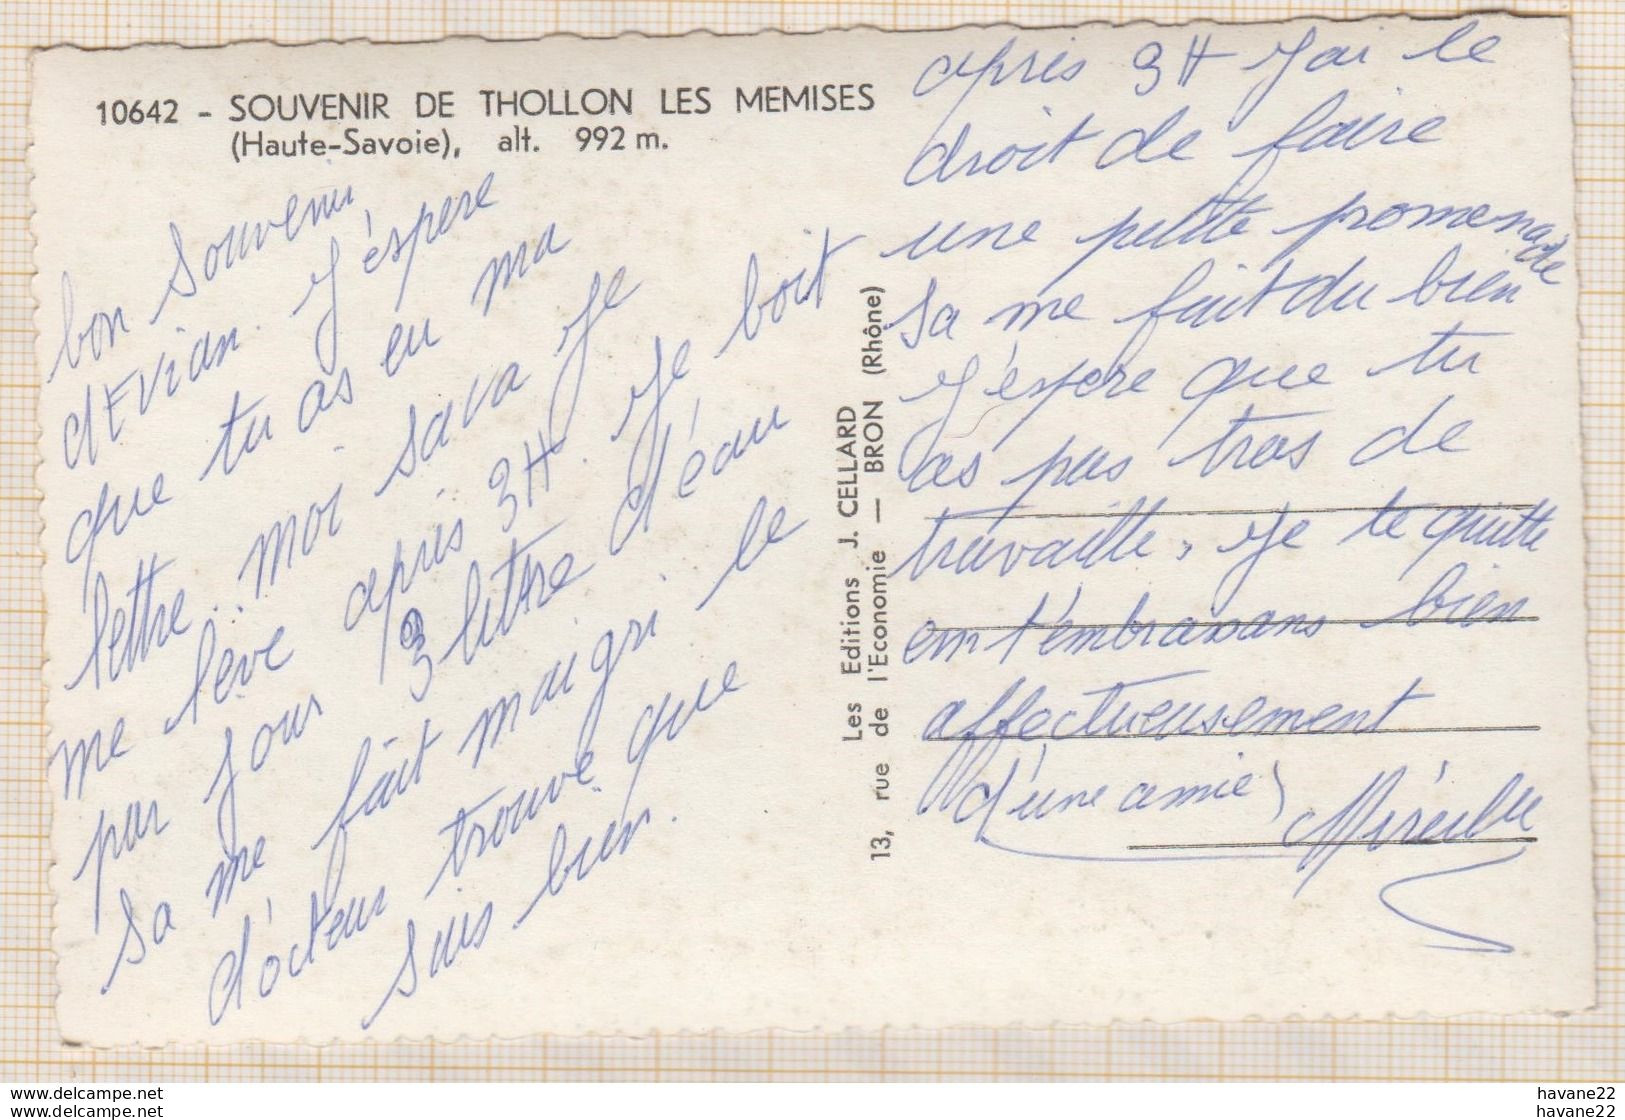 10642 - SOUVENIR DE THOLLON LES MEMISES
(Haute-Savoie), alt. 992 m.
bon souvenir
d'Evian. J'éspere
que tu as eu ma
lettre.. moi sava je
me lève après 3H. Je boit
par jour 3 littre d'éau
sa me fait maigri le
d'octeur trouve que
suis bien.
Les Editions J. CELLARD
13, rue de l'Economie — BRON (Rhône)
après 3H J'ai le
droit de faire
une petite promenade
sa me fait du bien
J'éspere que tu
as pas tros de
travaille, je te quitte
em t'embrassans bien
affectueusement
d'une amie
Mireille
www.delcampe.net
havane22
www.delcampe.net
havane22